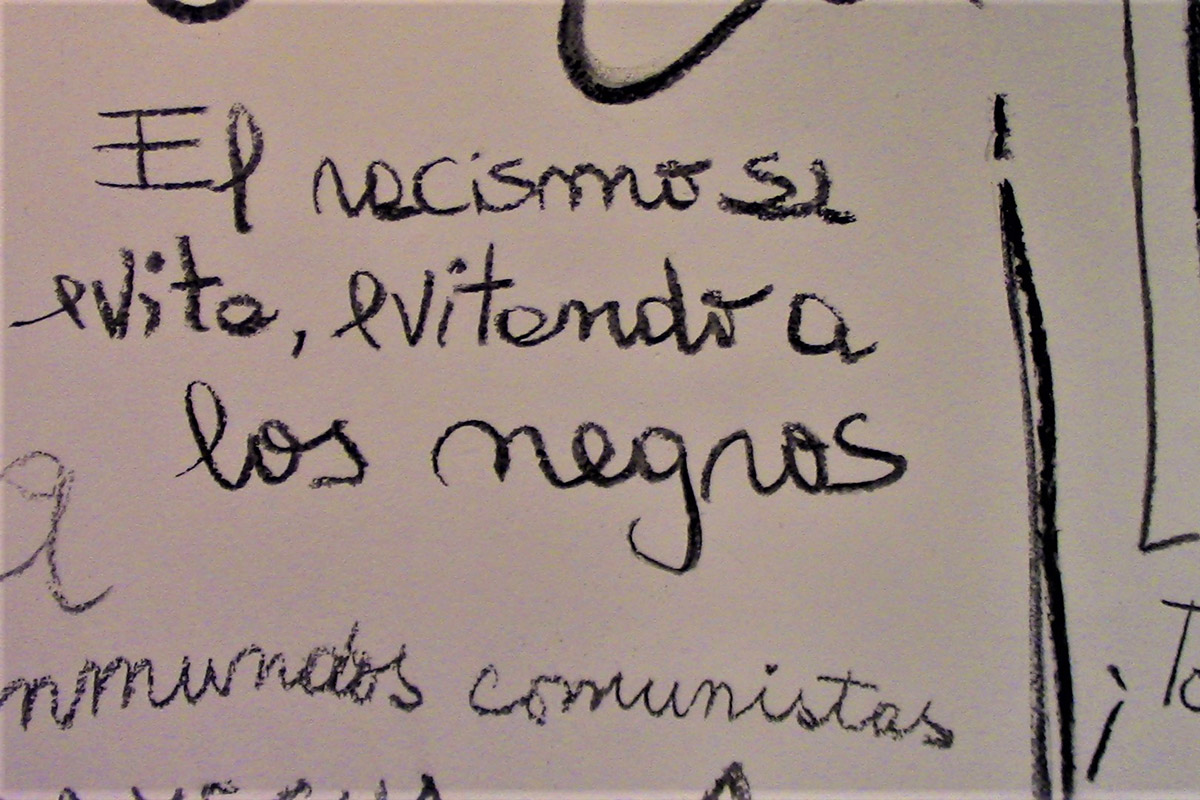 El racismo se
evita, evitando a
los negros
nmundos comunistas